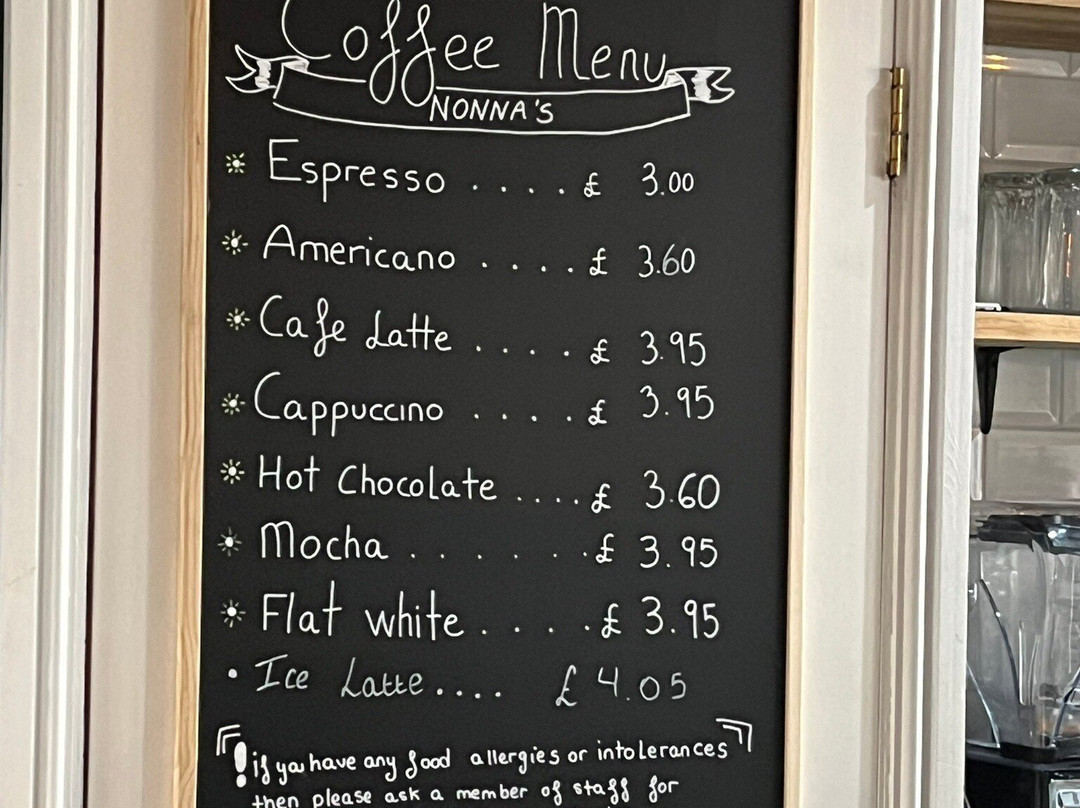 Coffee Menu
NONNA'S
Espresso .... £ 3.00
Americano .... £ 3.60
Cafe Latte .... £ 3.95
Cappuccino .... £ 3.95
Hot Chocolate .... £ 3.60
Mocha ....... £ 3.95
Flat white .... £ 3.95
Ice Latte.... £ 4.05
! if you have any food allergies or intolerances
then please ask a member of staff for